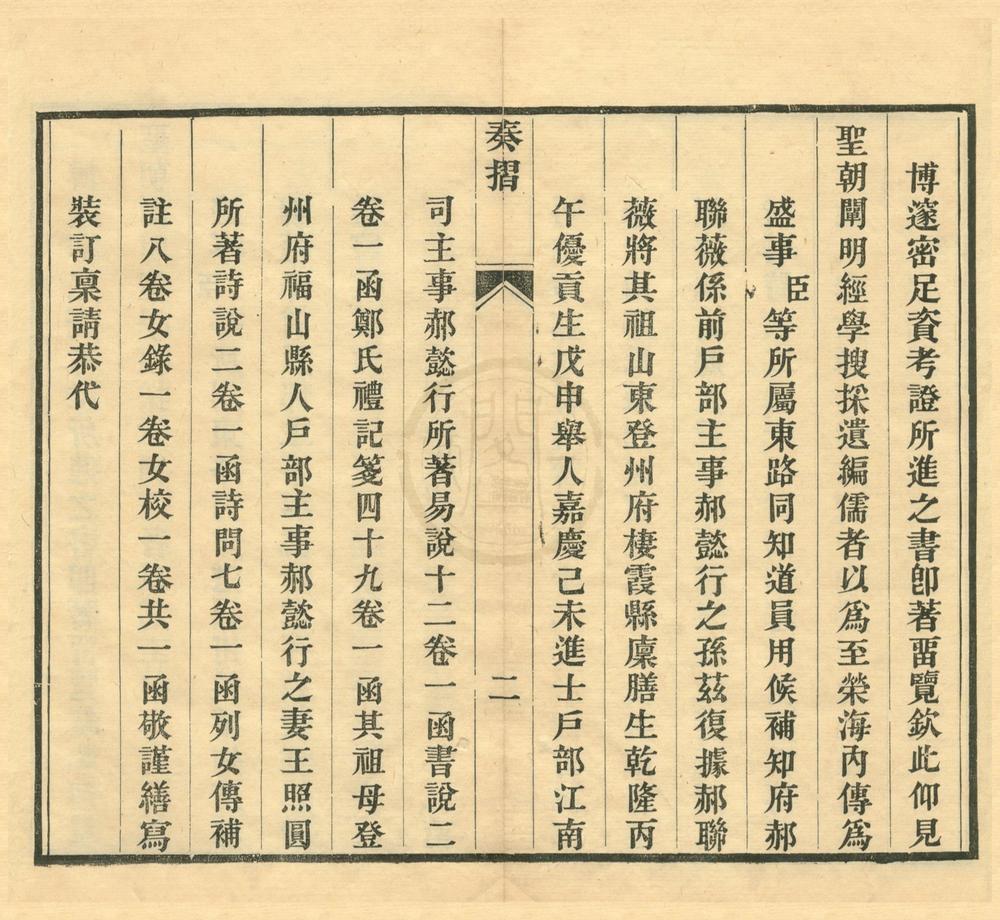 博邃密足資考證所進之書卽著畱覽欽此仰見
聖朝闡明經學搜採遺編儒者以爲至榮海内傳爲
盛事臣等所屬東路同知道員用候補知府郝
聯薇係前戸部主事郝懿行之孫茲復據郝聯
薇將其祖山東登州府棲霞縣廩膳生乾隆丙
午優貢生戊申舉人嘉慶己未進士戸部江南
奏摺
二
司主事郝懿行所著易說十二卷一函書說二
卷一函鄭氏禮記箋四十九卷一函其祖母登
州府福山縣人戸部主事郝懿行之妻王照圓
所著詩說二卷一函詩問七卷一函列女傳補
註八卷女錄一卷女校一卷共一函敬謹繕寫
裝訂稟請恭代